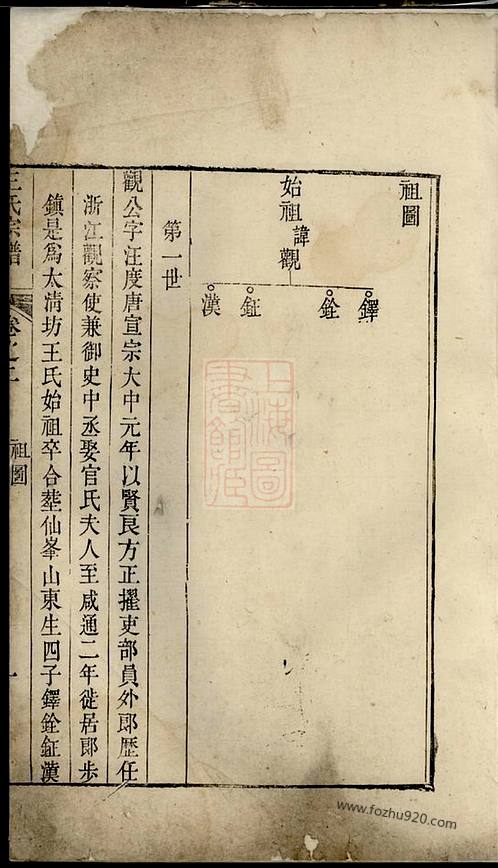 祖圖
始祖諱觀
鐸
銓
鉦
漢
第一世
觀公字汪度唐宣宗大中元年以賢良方正擢吏部員外郎歷任
浙江觀察使兼御史中丞娶官氏夫人至咸通二年徙居郎步
鎮是爲太清坊王氏始祖卒合塟仙峯山東生四子鐸銓鉦漢
王氏宗譜
卷之
祖圖
一
上海圖書館藏
www.fozhu920.com